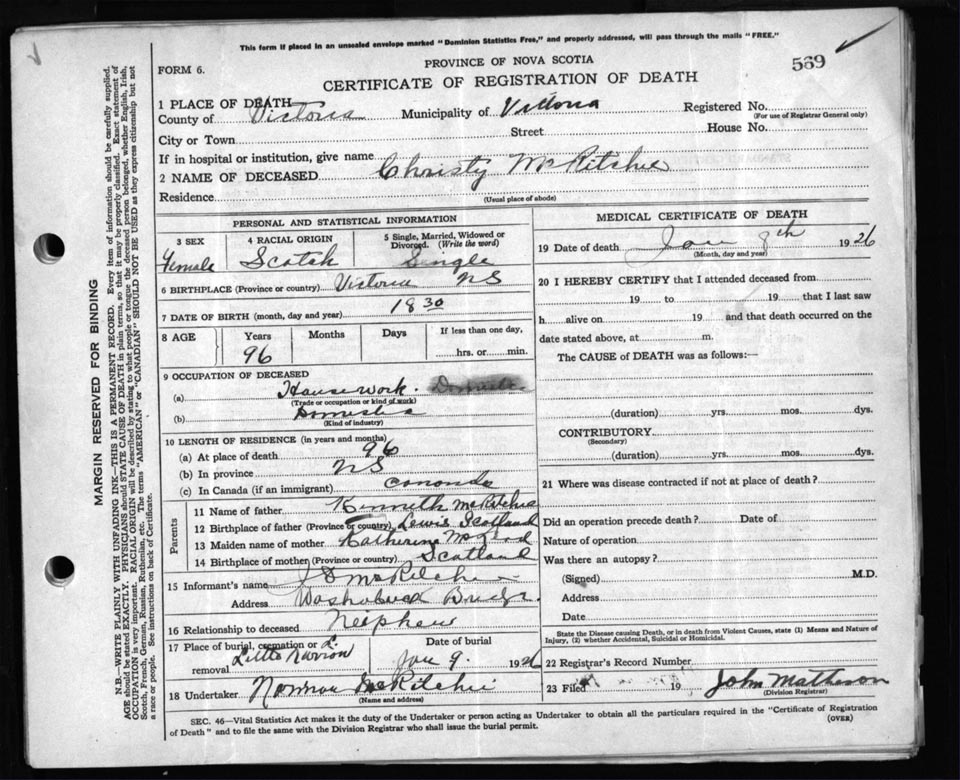 This form if placed in an unsealed envelope marked "Dominion Statistics Free," and properly addressed, will pass through the mails "FREE."
569
PROVINCE OF NOVA SCOTIA
FORM 6.
CERTIFICATE OF REGISTRATION OF DEATH
1 PLACE OF DEATH
County of Victoria Municipality of Victoria Registered No.
(For use of Registrar General only)
City or Town Street House No.
If in hospital or institution, give name
2 NAME OF DECEASED Christy McRitchie
Residence
(Usual place of abode)
PERSONAL AND STATISTICAL INFORMATION
3 SEX 4 RACIAL ORIGIN 5 Single, Married, Widowed or Divorced. (Write the word)
Female Scotch Single
6 BIRTHPLACE (Province or country) Victoria NS
7 DATE OF BIRTH (month, day and year) 1830
8 AGE Years Months Days If less than one day,
96 hrs. or min.
9 OCCUPATION OF DECEASED
(a) Housework. Domestic
(Trade or occupation or kind of work)
(b) Domestic
(Kind of industry)
10 LENGTH OF RESIDENCE (in years and months)
(a) At place of death 96
(b) In province NS
(c) In Canada (if an immigrant)
Parents
11 Name of father Kenneth McRitchie
12 Birthplace of father (Province or country) Lewis Scotland
13 Maiden name of mother Katherine McLeod
14 Birthplace of mother (Province or country) Scotland
15 Informant's name McRitchie
Address Washabuck Bridge.
16 Relationship to deceased Neiphew
17 Place of burial, cremation or removal Date of burial
Little Narrow Jan 9. 1926
18 Undertaker McRitchie
(Name and address)
MEDICAL CERTIFICATE OF DEATH
19 Date of death Jan 8th 1926
(Month, day and year)
20 I HEREBY CERTIFY that I attended deceased from
19 to 19 that I last saw
h alive on 19 and that death occurred on the
date stated above, at m.
The CAUSE of DEATH was as follows:—
(duration) yrs. mos. dys.
CONTRIBUTORY
(Secondary)
(duration) yrs. mos. dys.
21 Where was disease contracted if not at place of death?
Did an operation precede death? Date of
Nature of operation
Was there an autopsy?
(Signed) M.D.
Address
Date
State the Disease causing Death, or in death from Violent Causes, state (1) Means and Nature of
Injury, (2) whether Accidental, Suicidal or Homicidal.
22 Registrar's Record Number
23 Filed 19 John Matheson
(Division Registrar)
SEC. 46—Vital Statistics Act makes it the duty of the Undertaker or person acting as Undertaker to obtain all the particulars required in the "Certificate of Registration
of Death" and to file the same with the Division Registrar who shall issue the burial permit.
(OVER)
MARGIN RESERVED FOR BINDING
N.B.—WRITE PLAINLY WITH UNFADING INK—THIS IS A PERMANENT RECORD. Every item of information should be carefully supplied.
AGE should be stated EXACTLY. PHYSICIANS should STATE CAUSE OF DEATH in plain terms, so that it may be properly classified. Exact statement of
OCCUPATION is very important. RACIAL ORIGIN will be described by stating to what people or tongue the deceased person belonged, whether English, Irish,
Scotch, French, German, Russian, Ruthenian, etc. The terms "AMERICAN" or "CANADIAN" SHOULD NOT BE USED as they express citizenship but not
a race or people. See instructions on back of Certificate.